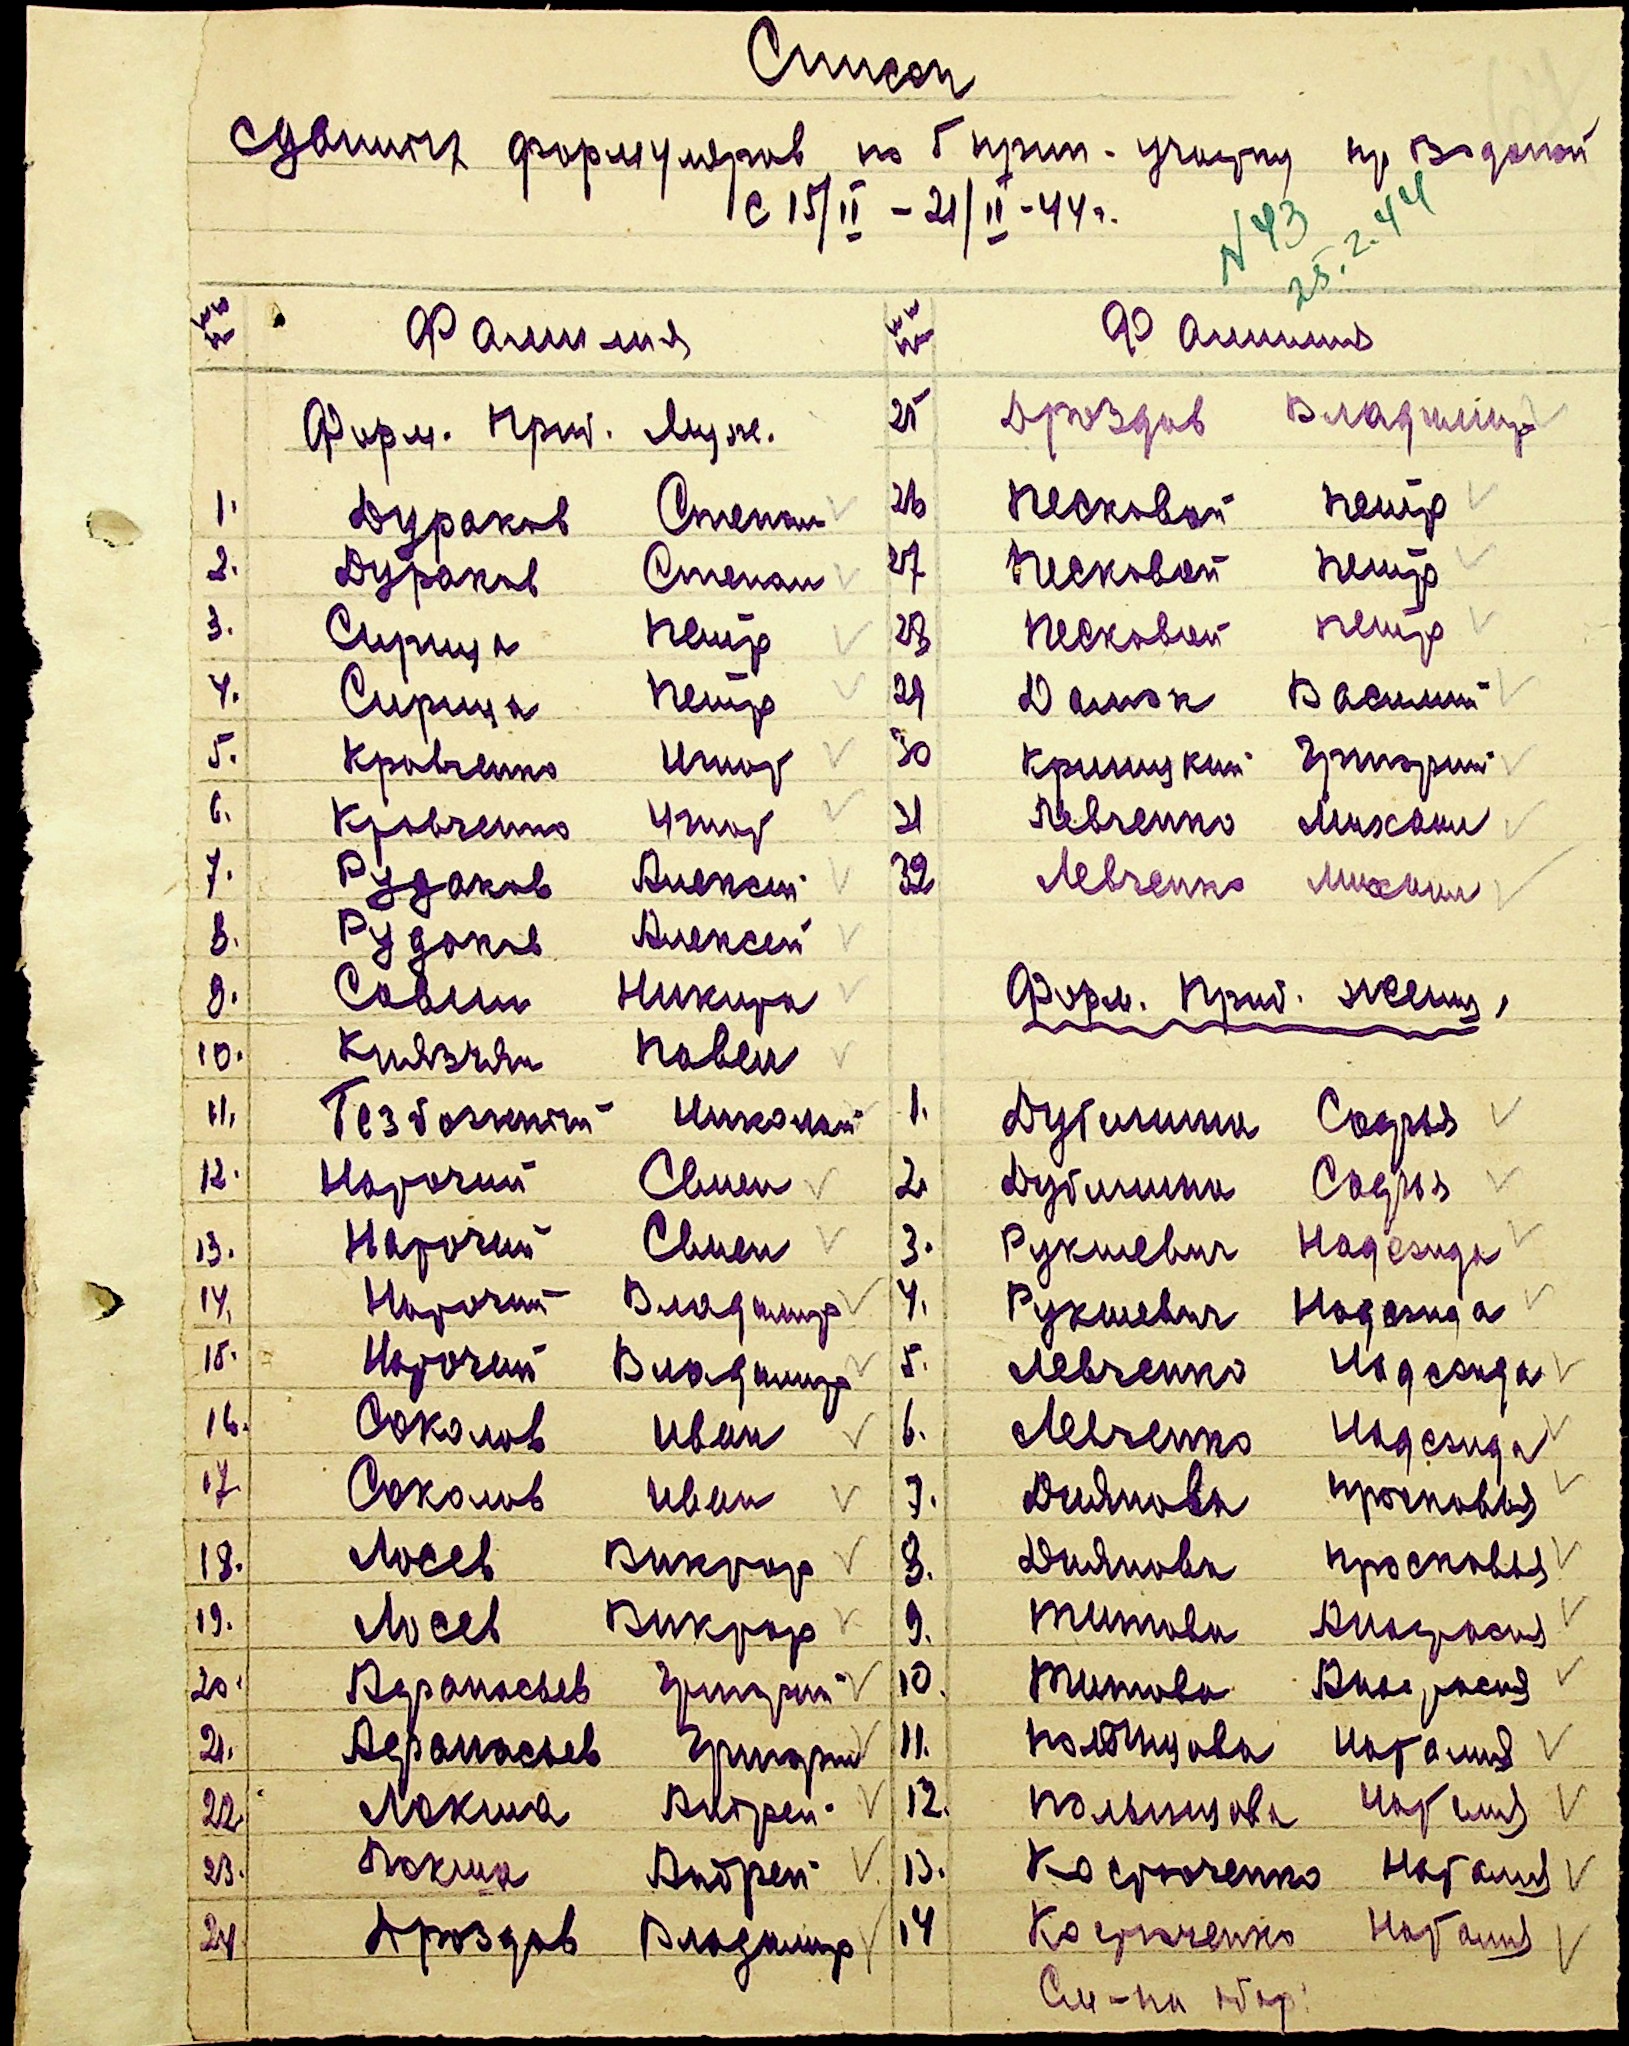 Список
сданных формуляров по 5 крим. участку пр Водяной
с 15/II – 21/II – 44 г.
N 43
25.2.44
№№ Фамилия
Форм. Приб. Мужч.
1. Дураков Степан
2. Дураков Степан
3. Сирица Петр
4. Сирица Петр
5. Кравченко Игнат
6. Кравченко Игнат
7. Рудаков Алексей
8. Рудаков Алексей
9. Савин Никита
10. Князчян Павел
11. Безбожный Николай
12. Нарочий Семен
13. Нарочий Семен
14. Нарочий Владимир
15. Нарочий Владимир
16. Соколов Иван
17. Соколов Иван
18. Лосев Виктор
19. Лосев Виктор
20. Афанасьев Григорий
21. Афанасьев Григорий
22. Локша Андрей
23. Локша Андрей
24 Дроздов Владимир
№№ Фамилия
25 Дроздов Владимир
26 Песковой Петр
27 Песковой Петр
28 Песковой Петр
29 Василий
30 Криницкий Григорий
31 Левченко Михаил
32 Левченко Михаил
Форм. Приб. женщ.
1. Дубинина Софья
2. Дубинина Софья
3. Рукшевич Надежда
4. Рукшевич Надежда
5. Левченко Надежда
6. Левченко Надежда
7. Демянова Прасковья
8. Демянова Прасковья
9. Титова Анастасия
10. Титова Анастасия
11. Кольцова Наталия
12. Кольцова Наталия
13. Костюченко Наталия
14 Костюченко Наталия
См - на обор.